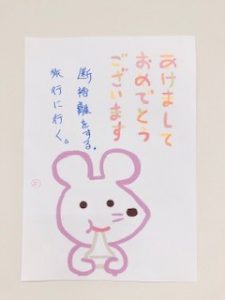 あけまして
おめでとう
ございます
断捨離をする。
旅行に行く。